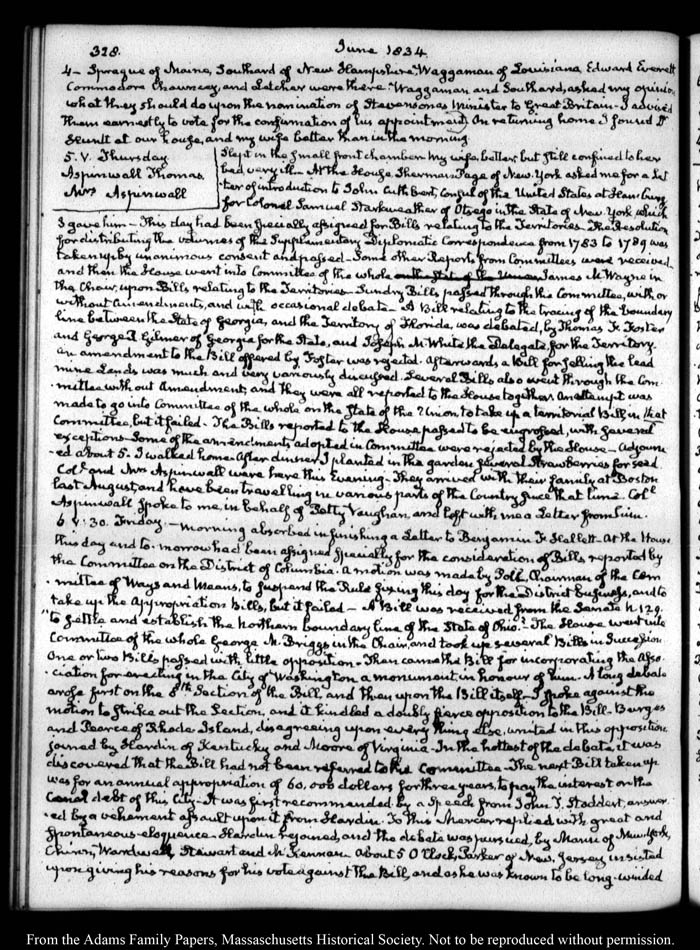 328. June 1834
4— Sprague of Maine, Southard of New Hampshire, Waggaman of Louisiana, Edward Everett
Commodore Chauncey, and Letcher were there. Waggaman and Southard, asked my opinion
what they should do upon the nomination of Stevenson as Minister to Great Britain— I advised
them earnestly to vote for the confirmation of his appointment. On returning home I found Dr
Hunt at our house, and my wife better than in the morning.
5. V. Thursday
Aspinwall Thomas
Mrs Aspinwall
I slept in the small front chamber. My wife better but still confined to her
bed, very ill— At the House Sherman Page of New York asked me for a Let
ter of introduction to John Cuthbert, Consul of the United States at Hamburg
for Colonel Samuel Starkweather of Otsego in the State of New York which
I gave him— This day had been specially assigned for Bills relating to the Territories. The Resolution
for distributing the volumes of the Supplementary Diplomatic Correspondence from 1783 to 1789 was
taken up by unanimous consent and passed— Some other Reports from Committees were received
and then the House went into Committee of the whole on the state of the Union, James M. Wayne in
the Chair, upon Bills relating to the Territories— Sundry Bills passed through the Committee, with or
without Amendments, and with occasional debate— A Bill relating to the tracing of the boundary
line between the State of Georgia, and the Territory of Florida, was debated, by Thomas F. Foster
and George R Gilmer of Georgia for the State, and Joseph M. White the Delegate for the Territory.
An amendment to the Bill offered by Foster was rejected. Afterwards a Bill for selling the lead
mine Lands was much and very variously discussed. Several Bills also went through the Com
mittee without Amendment, and they were all reported to the House together. An attempt was
made to go into Committee of the whole on the State of the Union to take up a territorial Bill, in that
Committee, but it failed— The Bills reported to the House passed to be engrossed, with several
exceptions. Some of the amendments adopted in Committee were rejected by the House— Adjourn
ed about 5. I walked home. After dinner I planted in the garden several Strawberries for seed.
Coll. and Mrs Aspinwall were here this Evening— They arrived with their family at Boston
last August, and have been travelling in various parts of the Country since that time. Coll.
Aspinwall spoke to me, in behalf of Petty Vaughan, and left with me a Letter from him.
6. V: 30. Friday.— Morning absorbed in finishing a Letter to Benjamin F. Hallett— At the House
this day and to-morrow had been assigned specially for the consideration of Bills reported by
the Committee on the District of Columbia. A motion was made by Polk, Chairman of the Com
mittee of Ways and Means, to suspend the Rule fixing this day for the District business, and to
take up the Appropriation Bills, but it failed— A Bill was received from the Senate N. 129.
"to settle and establish the Northern boundary line of the State of Ohio."— The House went into
Committee of the whole George N. Briggs in the Chair, and took up several Bills in succession
One or two Bills passed with little opposition— Then came the Bill for incorporating the Asso
ciation for erecting in the City of Washington a monument, in honour of him. A long debate
arose first on the 8th Section of the Bill, and then upon the Bill itself— I spoke against the
motion to strike out the Section, and it kindled a doubly fierce opposition to the Bill— Burges
and Pearce of Rhode Island, disagreeing upon every thing else, united in this opposition
joined by Hardin of Kentucky and Moore of Virginia. In the hottest of the debate, it was
discovered that the Bill had not been referred to this Committee— The next Bill taken up
was for an annual appropriation of 60,000 dollars for three years, to pay the interest on the
Canal debt of this City— It was first recommended by a speech from John T. Stoddert, answer
ed by a vehement assault upon it from Hardin. To this Mercer replied with great and
spontaneous eloquence— Hardin rejoined, and the debate was pursued, by Mann of New York,
Chinn, Wardwell, Stewart and McKennan. About 5 O'Clock, Parker of New Jersey insisted
upon giving his reasons for his vote against the Bill, and as he was known to be long-winded
From the Adams Family Papers, Massachusetts Historical Society. Not to be reproduced without permission.